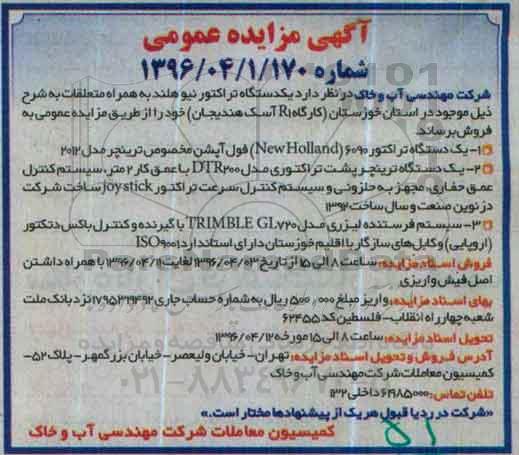 آگهی مزایده عمومی
شماره ۱۳۹۶/۰۴/۱/۱۷۰
شرکت مهندسی آب و خاک در نظر دارد یکدستگاه تراکتور نیوهلند به همراه متعلقات به شرح
ذیل موجود در استان خوزستان (کارگاه R1 آسک هندیجان) خود را از طریق مزایده عمومی به
فروش برساند.
۱- یک دستگاه تراکتور ۶۰۹۰ (New Holland) فول آپشن مخصوص ترینچر مدل ۲۰۱۲
۲- یک دستگاه ترینچر پشت تراکتوری مدل DTR۲۰۰ با عمق کار ۲ متر، سیستم کنترل
عمق حفاری، مجهز به حلزونی و سیستم کنترل سرعت تراکتور joystick ساخت شرکت
در نوین صنعت و سال ساخت ۱۳۹۲
۳- سیستم فرستنده لیزری مدل TRIMBLE GL۷۲۰ با گیرنده و کنترل باکس دتکتور
(اروپایی) و کابل‌های سازگار با اقلیم خوزستان دارای استاندارد ISO۹۰۰۱
فروش اسناد مزایده: ساعت ۸ الی ۱۵ از تاریخ ۱۳۹۶/۰۴/۰۳ لغایت ۱۳۹۶/۰۴/۱۱ با همراه داشتن
اصل فیش واریزی
بهای اسناد مزایده: واریز مبلغ ۵۰۰,۰۰۰ ریال به شماره حساب جاری ۱۷۹۵۳۶۹۴۹۲ نزد بانک ملت
شعبه چهارراه انقلاب- فلسطین کد ۶۲۴۵۵
تحویل اسناد مزایده: ساعت ۸ الی ۱۵ مورخه ۱۳۹۶/۰۴/۱۲
آدرس فروش و تحویل اسناد مزایده: تهران- خیابان ولیعصر- خیابان بزرگمهر- پلاک ۵۲-
کمیسیون معاملات شرکت مهندسی آب و خاک
تلفن تماس: ۶۱۹۸۵۰۰۰ داخلی ۱۳۲
«شرکت در رد یا قبول هر یک از پیشنهادها مختار است.»
کمیسیون معاملات شرکت مهندسی آب و خاک